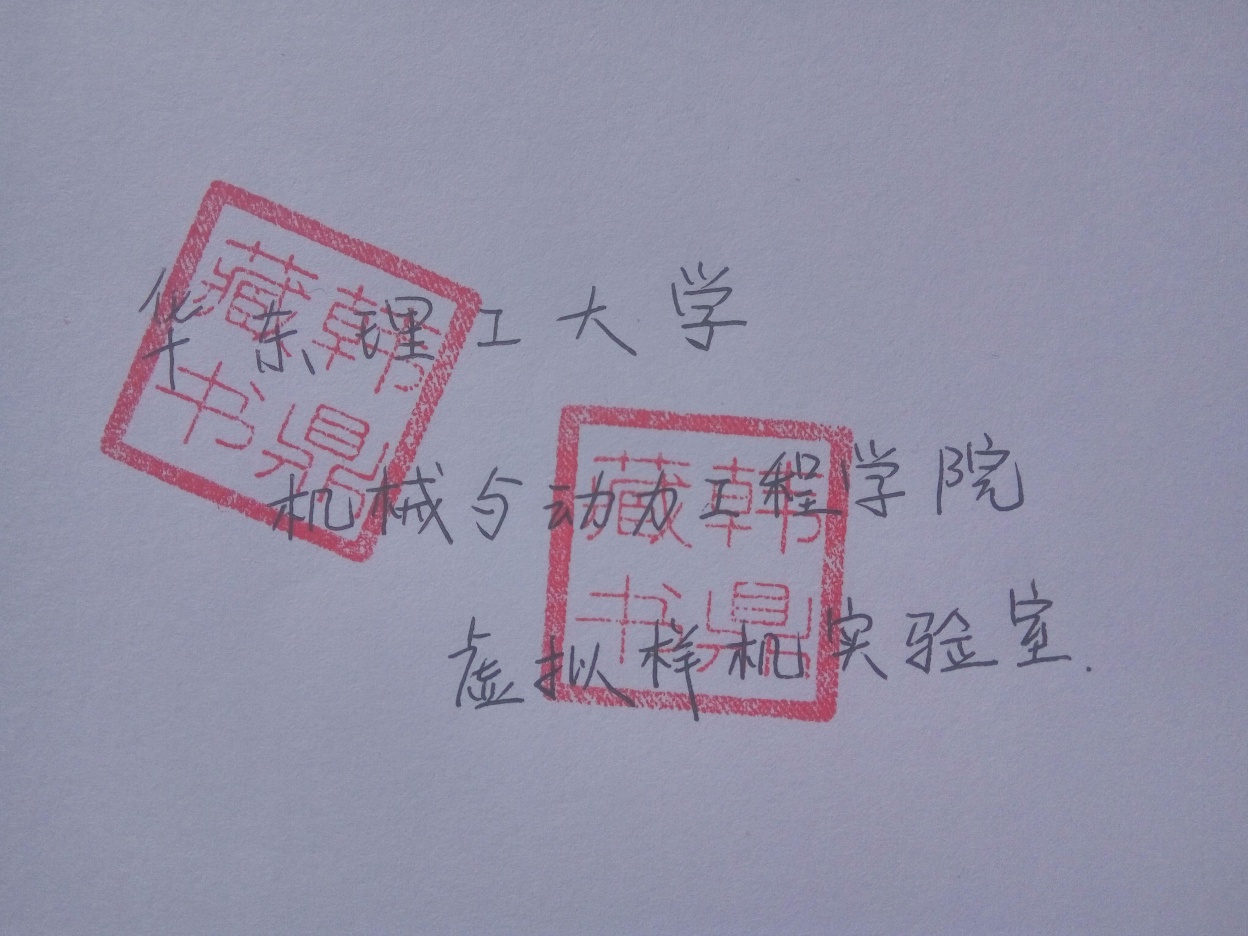 华东理工大学
机械与动力工程学院
虚拟样机实验室.
韩鼎
藏书
韩鼎
藏书